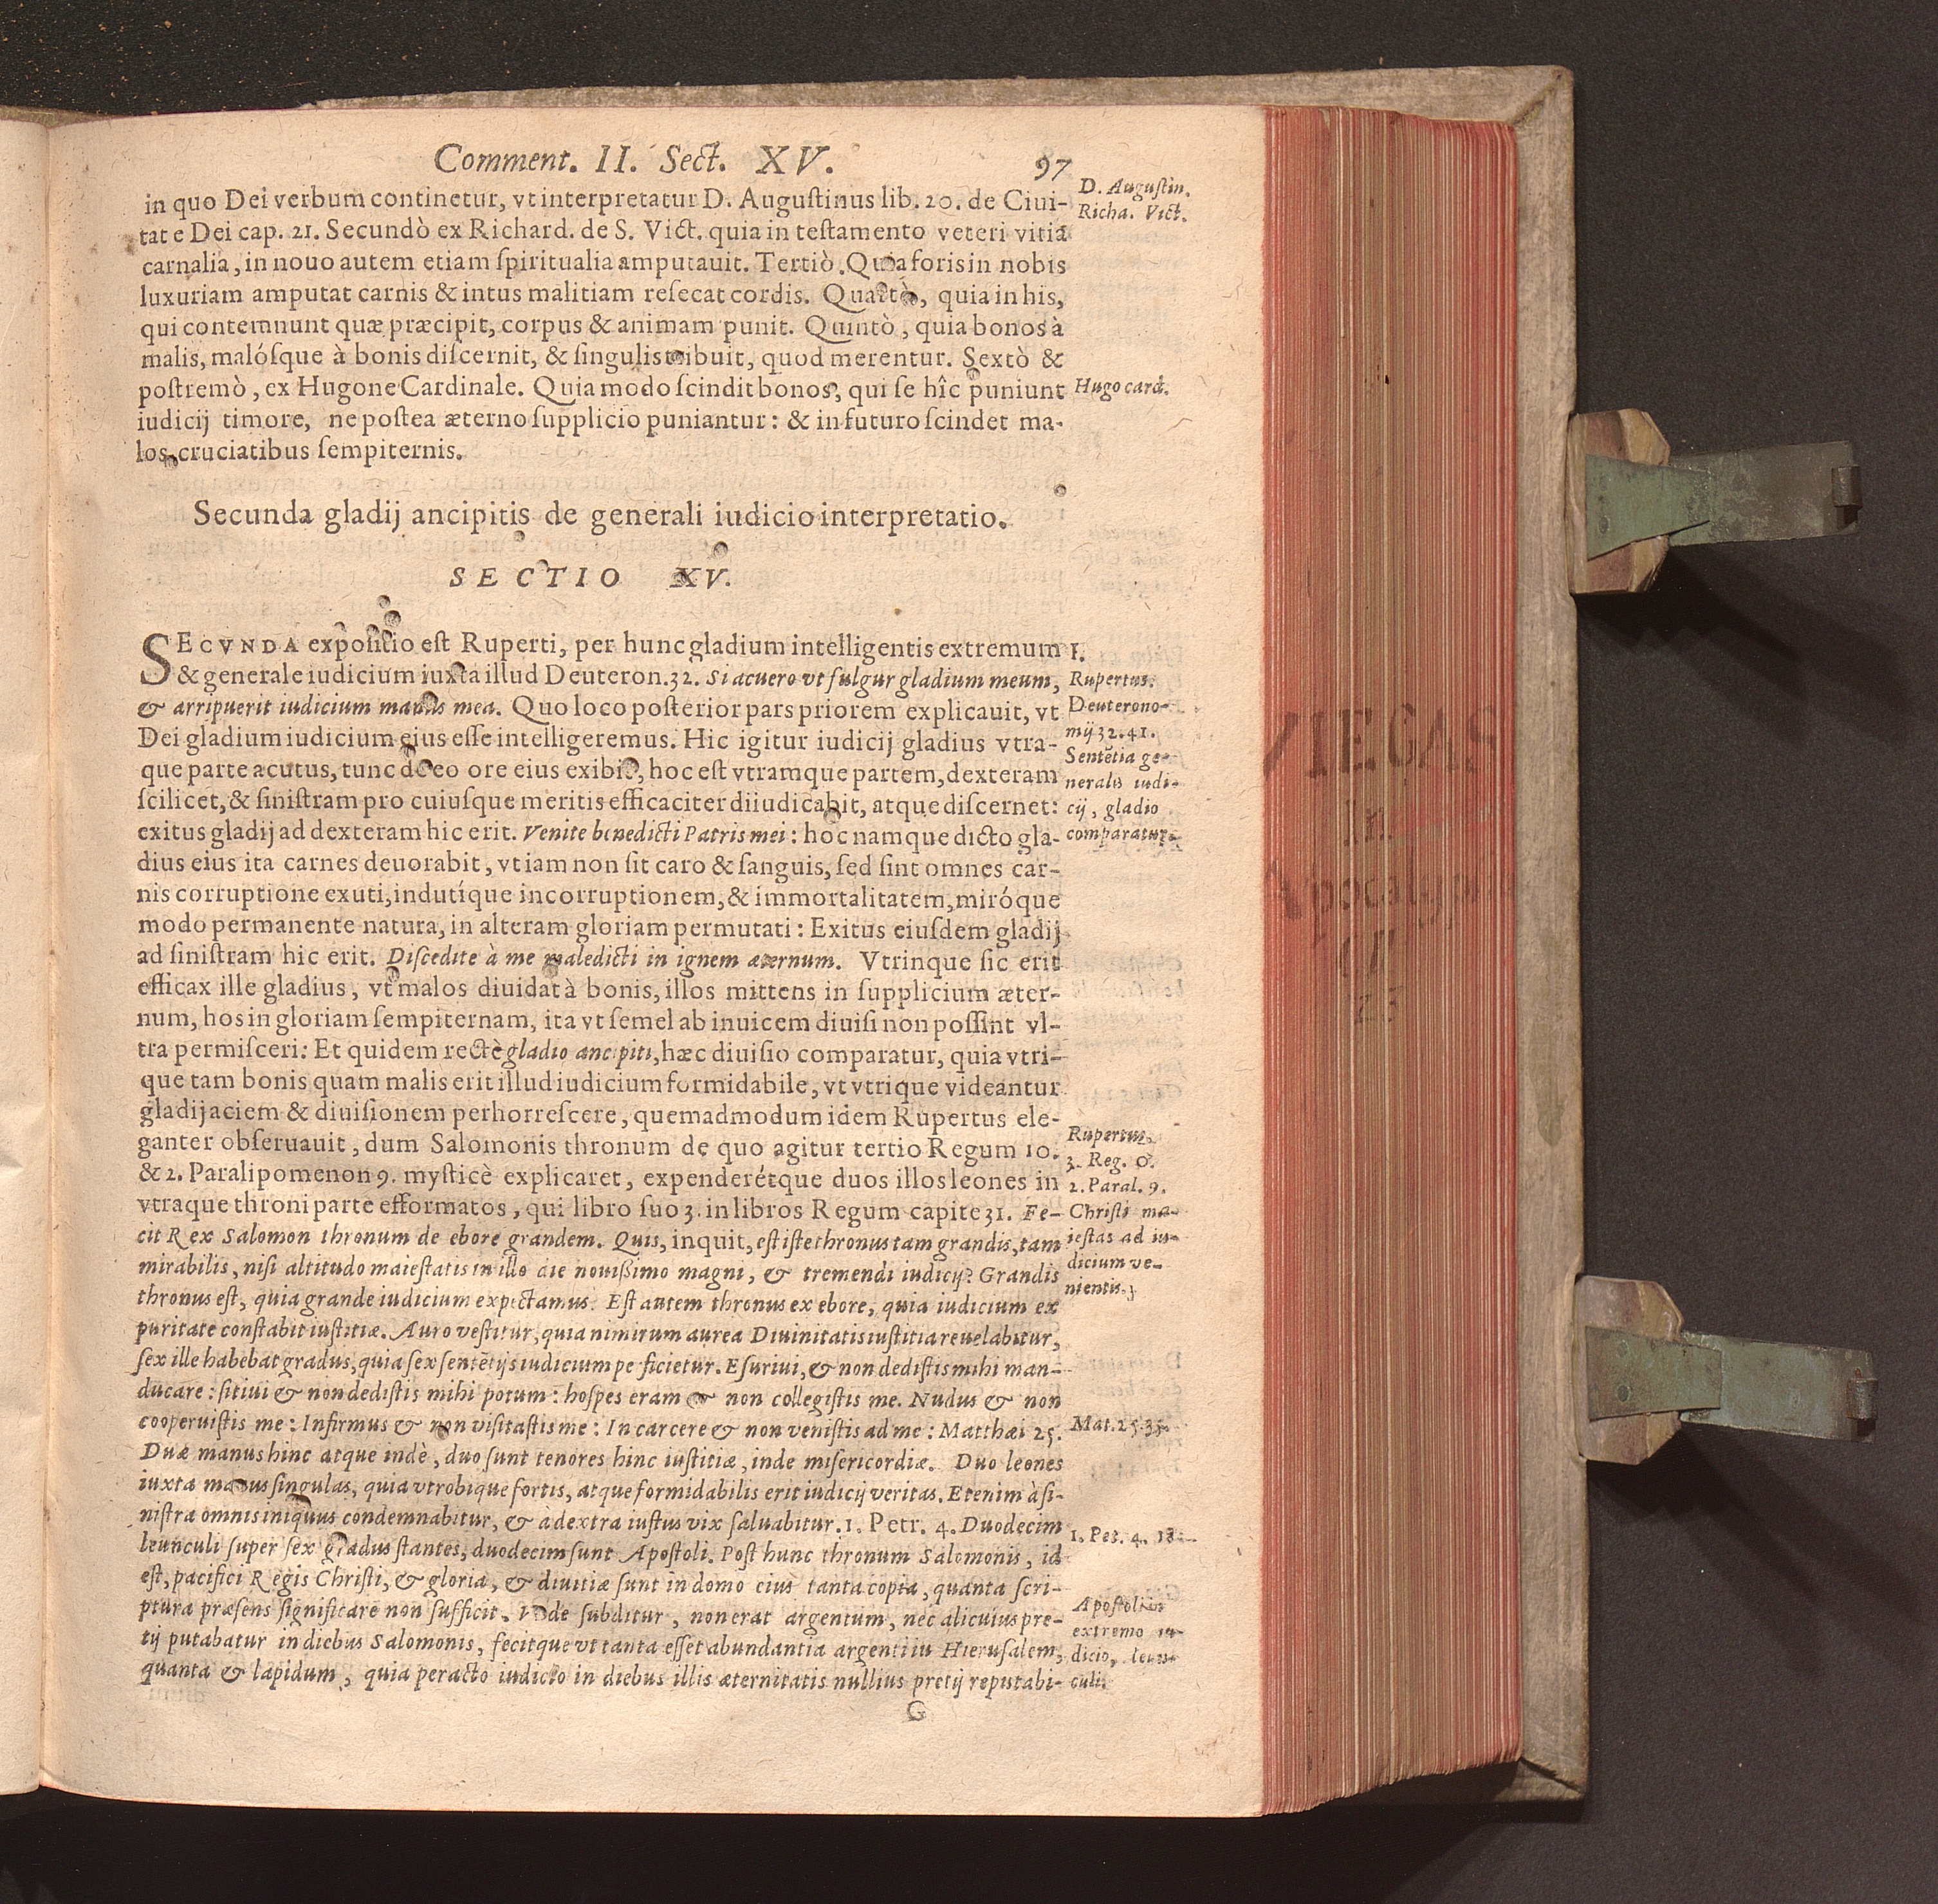 Comment. II. Sect. XV. 97
in quo Dei verbum continetur, vt interpretatur D. Auguſtinus lib. 20. de Ciui-
tate Dei cap. 21. Secundò ex Richard. de S. Vict. quia in teſtamento veteri vitia
carnalia, in nouo autem etiam ſpiritualia amputauit. Tertiò. Quia foris in nobis
luxuriam amputat carnis & intus malitiam reſecat cordis. Quartò, quia in his,
qui contemnunt quæ præcipit, corpus & animam punit. Quintò, quia bonos à
malis, malóſque à bonis diſcernit, & ſingulis tribuit, quod merentur. Sextò &
poſtremò, ex Hugone Cardinale. Quia modo ſcindit bonos, qui ſe hîc puniunt
iudicij timore, ne poſtea æterno ſupplicio puniantur: & in futuro ſcindet ma-
los cruciatibus ſempiternis.
D. Auguſtin.
Richa. Vict.
Hugo card.
Secunda gladij ancipitis de generali iudicio interpretatio.
SECTIO XV.
SECVNDA expoſitio eſt Ruperti, per hunc gladium intelligentis extremum
& generale iudicium iuxta illud Deuteron. 32. Si acuero vt fulgur gladium meum,
& arripuerit iudicium manus mea. Quo loco poſterior pars priorem explicauit, vt
Dei gladium iudicium eius eſſe intelligeremus. Hic igitur iudicij gladius vtra-
que parte acutus, tunc de eo ore eius exibit, hoc eſt vtramque partem, dexteram
ſcilicet, & ſiniſtram pro cuiuſque meritis efficaciter diiudicabit, atque diſcernet:
exitus gladij ad dexteram hic erit. Venite benedicti Patris mei: hoc namque dicto gla-
dius eius ita carnes deuorabit, vt iam non ſit caro & ſanguis, ſed ſint omnes car-
nis corruptione exuti, indutíque incorruptionem, & immortalitatem, miróque
modo permanente natura, in alteram gloriam permutati: Exitus eiuſdem gladij
ad ſiniſtram hic erit. Diſcedite à me maledicti in ignem æternum. Vtrinque ſic erit
efficax ille gladius, vt malos diuidat à bonis, illos mittens in ſupplicium æter-
num, hos in gloriam ſempiternam, ita vt ſemel ab inuicem diuiſi non poſſint vl-
tra permiſceri: Et quidem rectè gladio ancipiti, hæc diuiſio comparatur, quia vtri-
que tam bonis quam malis erit illud iudicium formidabile, vt vtrique videantur
gladij aciem & diuiſionem perhorreſcere, quemadmodum idem Rupertus ele-
ganter obſeruauit, dum Salomonis thronum de quo agitur tertio Regum 10.
& 2. Paralipomenon 9. myſticè explicaret, expenderétque duos illos leones in
vtraque throni parte efformatos, qui libro ſuo 3. in libros Regum capite 31. Fe-
cit Rex Salomon thronum de ebore grandem. Quis, inquit, eſt iſte thronus tam grandis, tam
mirabilis, niſi altitudo maieſtatis in illo die nouißimo magni, & tremendi iudicij? Grandis
thronus eſt, quia grande iudicium expectamus. Eſt autem thronus ex ebore, quia iudicium ex
puritate conſtabit iuſtitiæ. Auro veſtitur, quia nimirum aurea Diuinitatis iuſtitia reuelabitur,
ſex ille habebat gradus, quia ſex ſentētijs iudicium perficietur. Eſuriui, & non dediſtis mihi man-
ducare: ſitiui & non dediſtis mihi potum: hoſpes eram & non collegiſtis me. Nudus & non
cooperuiſtis me: Infirmus & non viſitaſtis me: In carcere & non veniſtis ad me: Matthæi 25.
Duæ manus hinc atque indè, duo ſunt tenores hinc iuſtitiæ, inde miſericordiæ. Duo leones
iuxta manus ſingulas, quia vtrobique fortis, atque formidabilis erit iudicij veritas. Etenim à ſi-
niſtra omnis iniquus condemnabitur, & à dextra iuſtus vix ſaluabitur. 1. Petr. 4. Duodecim
leunculi ſuper ſex gradus ſtantes, duodecim ſunt Apoſtoli. Poſt hunc thronum Salomonis, id
eſt, pacifici Regis Chriſti, & gloria, & diuitiæ ſunt in domo eius tanta copia, quanta ſcri-
ptura præſens ſignificare non ſufficit. Inde ſubditur, non erat argentum, nec alicuius pre-
tij putabatur in diebus Salomonis, fecitque vt tanta eſſet abundantia argenti iu Hieruſalem,
quanta & lapidum, quia peracto iudicio in diebus illis æternitatis nullius pretij reputabi-
G
I.
Rupertus.
Deuterono-
mij 32. 41.
Sentētia ge-
neralis iudi-
cij, gladio
comparatur.
Rupertus.
3. Reg. 0.
2. Paral. 9.
Chriſti ma-
ieſtas ad iu-
dicium ve-
nientis.
Mat. 25. 35.
1. Pet. 4. 18.
Apoſtoli in
extremo iu-
dicio, leun-
culi.
VIEGAS
In
Apocalyp